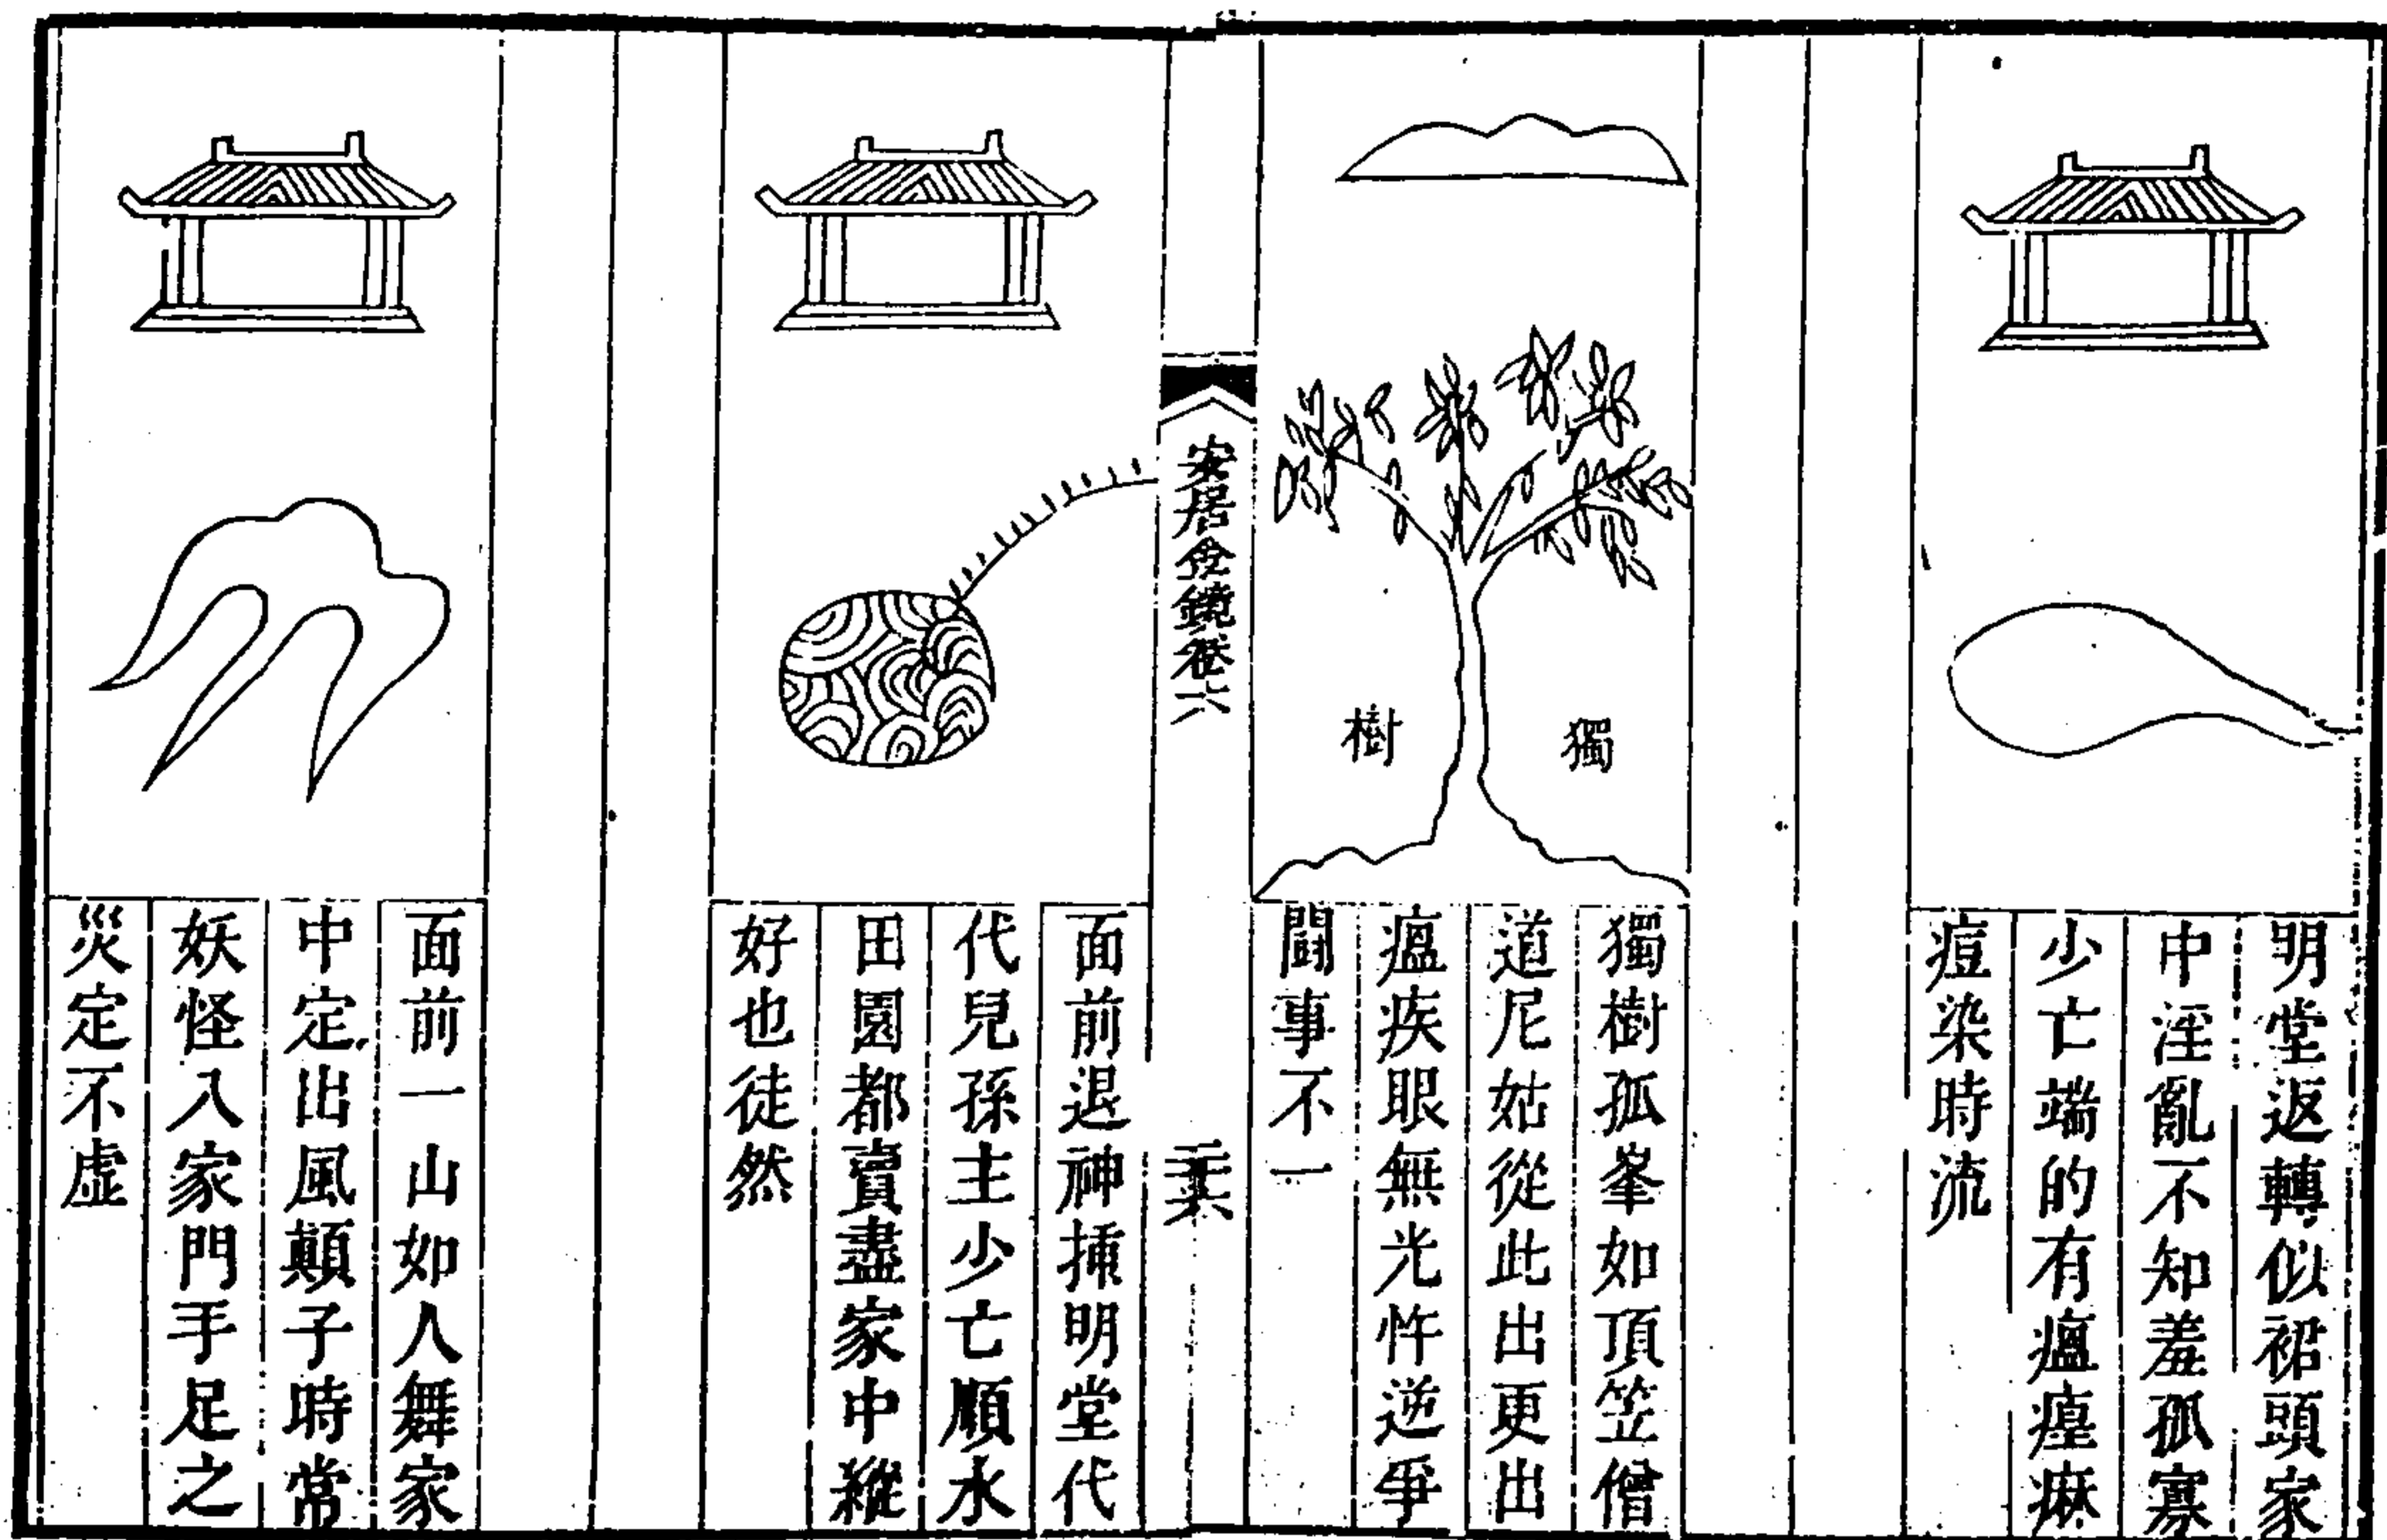 明堂返轉似裙頭家
中淫亂不知羞孤寡
少亡端的有瘟㾏痳
痘染時流
獨
樹
獨樹孤峯如頂笠僧
道尼姑從此出更出
瘟疾眼無光忤逆爭
鬪事不一
安居金鏡卷六
面前退神揷明堂代
代兒孫主少亡順水
田園都賣盡家中縱
好也徒然
面前一山如人舞家
中定出風顛子時常
妖怪入家門手足之
災定不虛